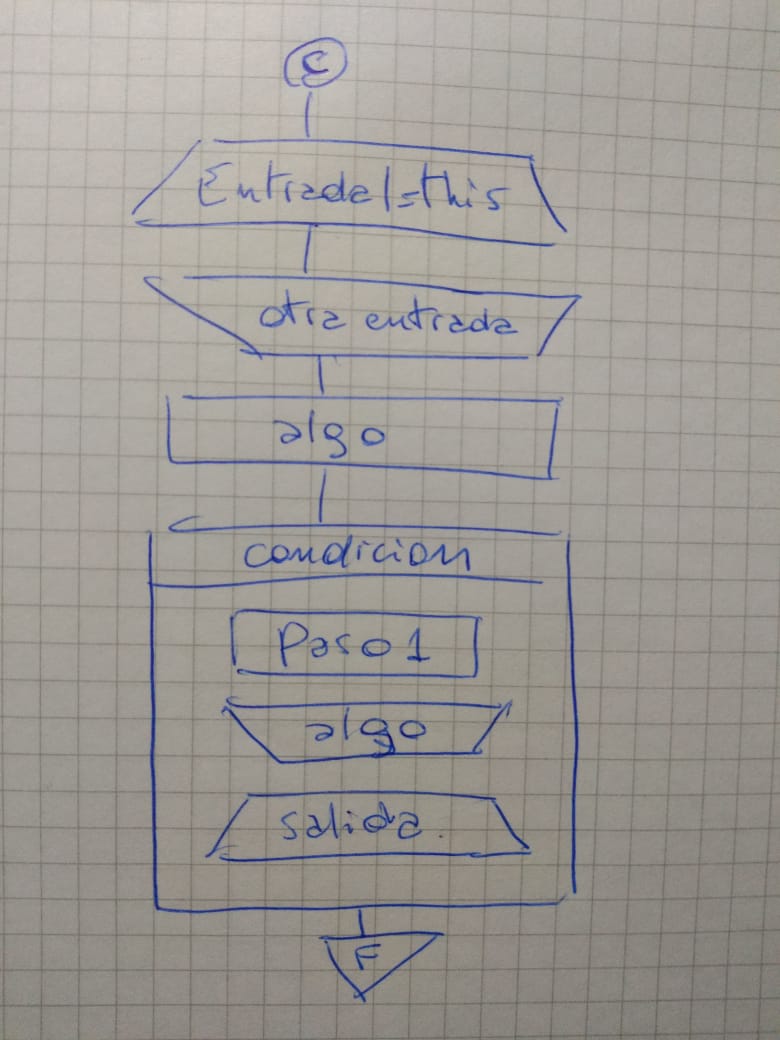 C
Entrada1=this
otra entrada
algo
condicion
Paso1
algo
salida.
F